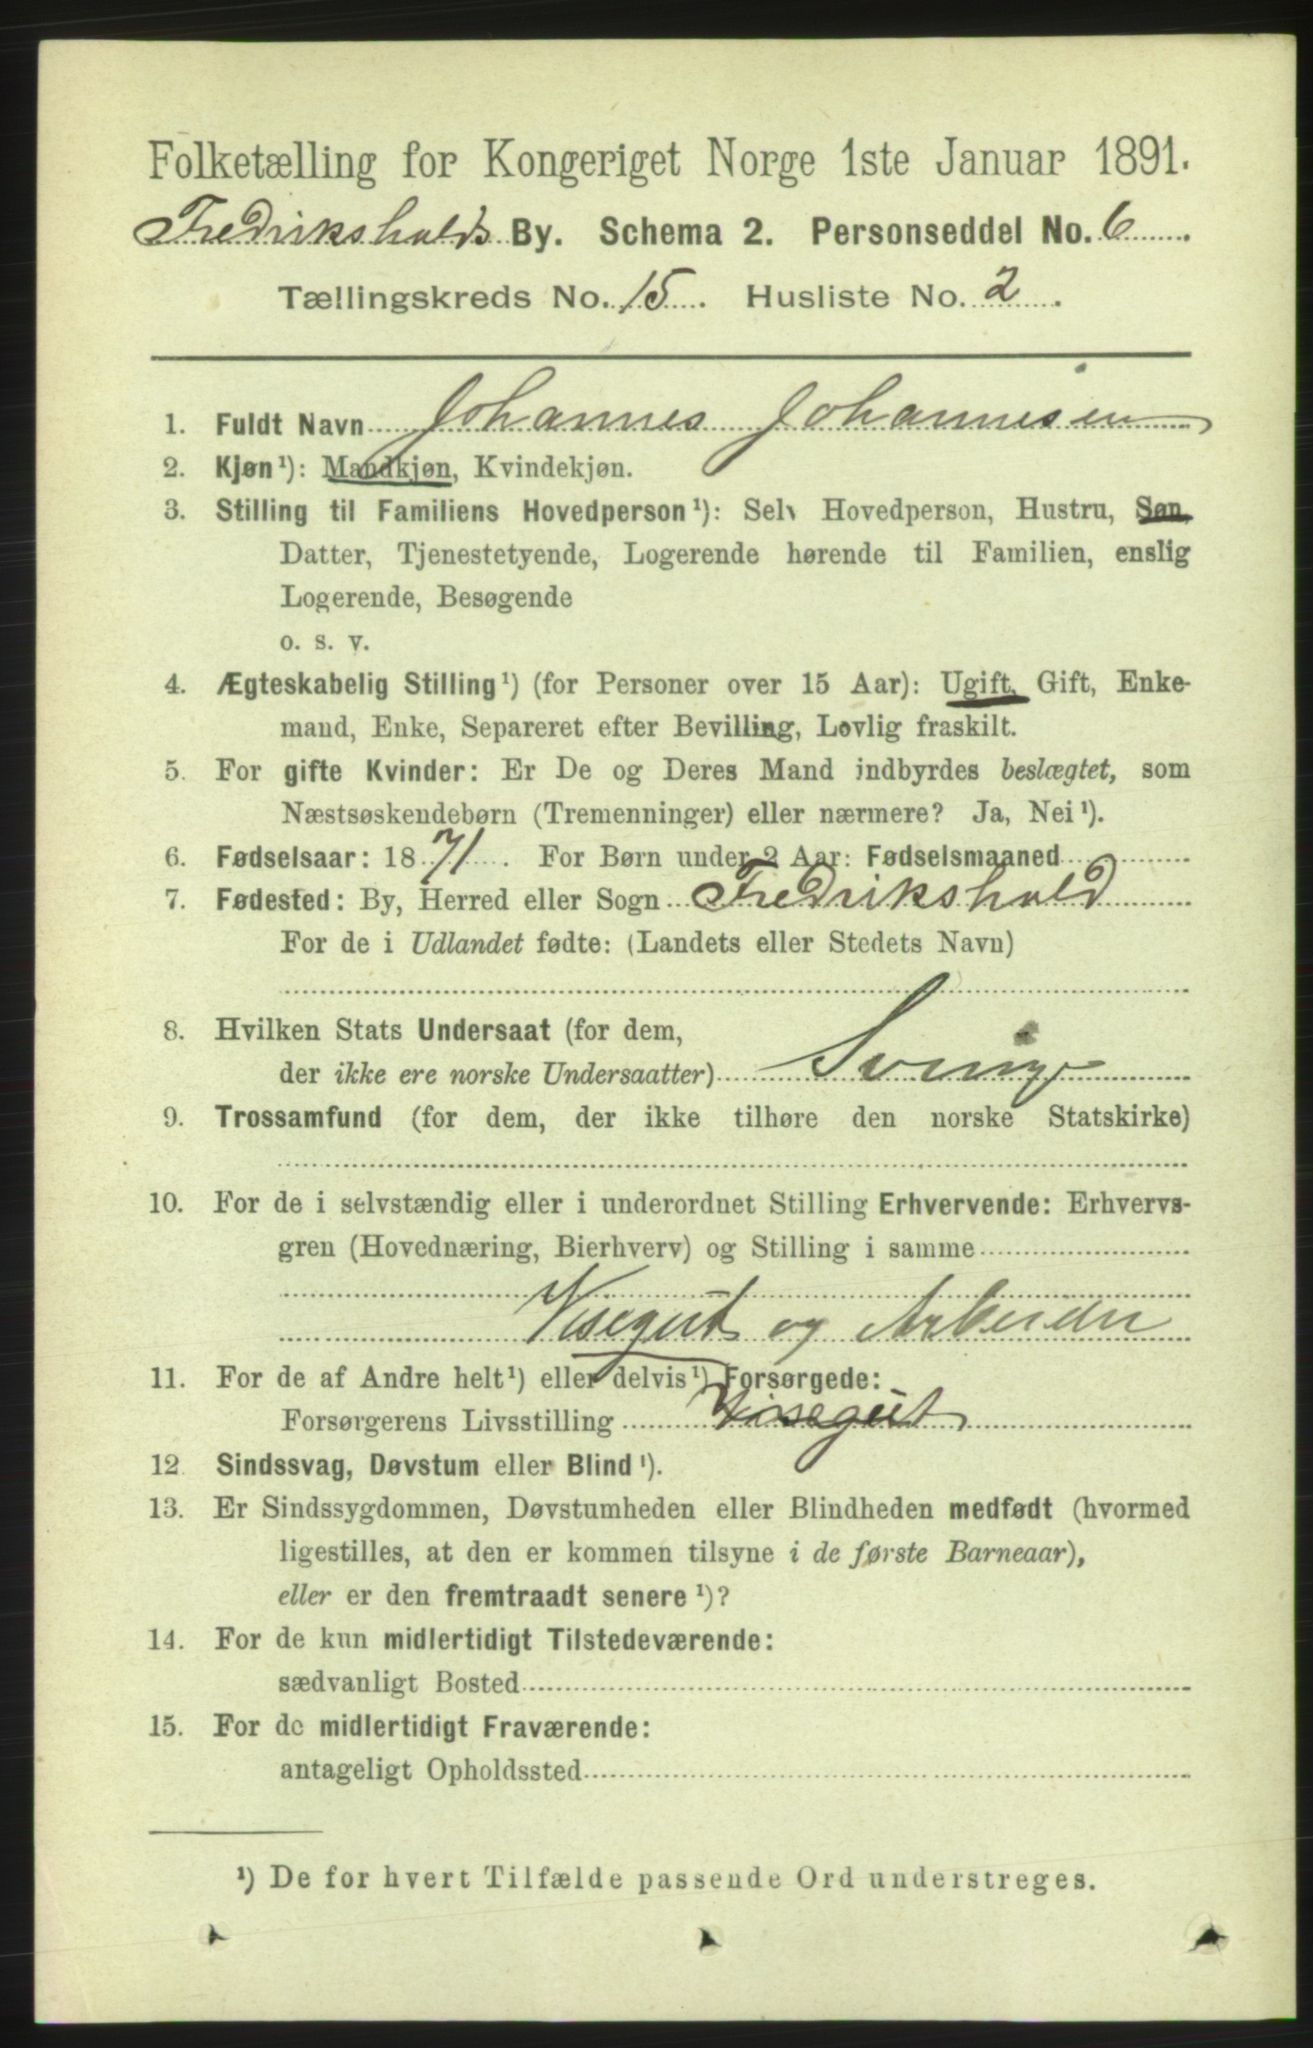 Folketælling for Kongeriget Norge 1ste Januar 1891.
Fredrikshalds By. Schema 2. Personseddel No. 6
Tællingskreds No. 15. Husliste No. 2.
1. Fuldt Navn Johannes Johannesen
2. Kjøn¹): Mandkjøn, Kvindekjøn.
3. Stilling til Familiens Hovedperson¹): Selv Hovedperson, Hustru, Søn,
Datter, Tjenestetyende, Logerende hørende til Familien, enslig
Logerende, Besøgende
o. s. v.
4. Ægteskabelig Stilling¹) (for Personer over 15 Aar): Ugift, Gift, Enke-
mand, Enke, Separeret efter Bevilling, Lovlig fraskilt.
5. For gifte Kvinder: Er De og Deres Mand indbyrdes beslægtet, som
Næstsøskendebørn (Tremenninger) eller nærmere? Ja, Nei¹).
6. Fødselsaar: 1871. For Børn under 2 Aar: Fødselsmaaned
7. Fødested: By, Herred eller Sogn Fredrikshald
For de i Udlandet fødte: (Landets eller Stedets Navn)
8. Hvilken Stats Undersaat (for dem,
der ikke ere norske Undersaatter)
9. Trossamfund (for dem, der ikke tilhøre den norske Statskirke)
10. For de i selvstændig eller i underordnet Stilling Erhvervende: Erhvervs-
gren (Hovednæring, Bierhverv) og Stilling i samme
Visegut og Arbeider
11. For de af Andre helt¹) eller delvis¹) Forsørgede:
Forsørgerens Livsstilling Visegut
12. Sindssvag, Døvstum eller Blind¹).
13. Er Sindssygdommen, Døvstumheden eller Blindheden medfødt (hvormed
ligestilles, at den er kommen tilsyne i de første Barneaar),
eller er den fremtraadt senere¹)?
14. For de kun midlertidigt Tilstedeværende:
sædvanligt Bosted
15. For de midlertidigt Fraværende:
antageligt Opholdssted
¹) De for hvert Tilfælde passende Ord understreges.